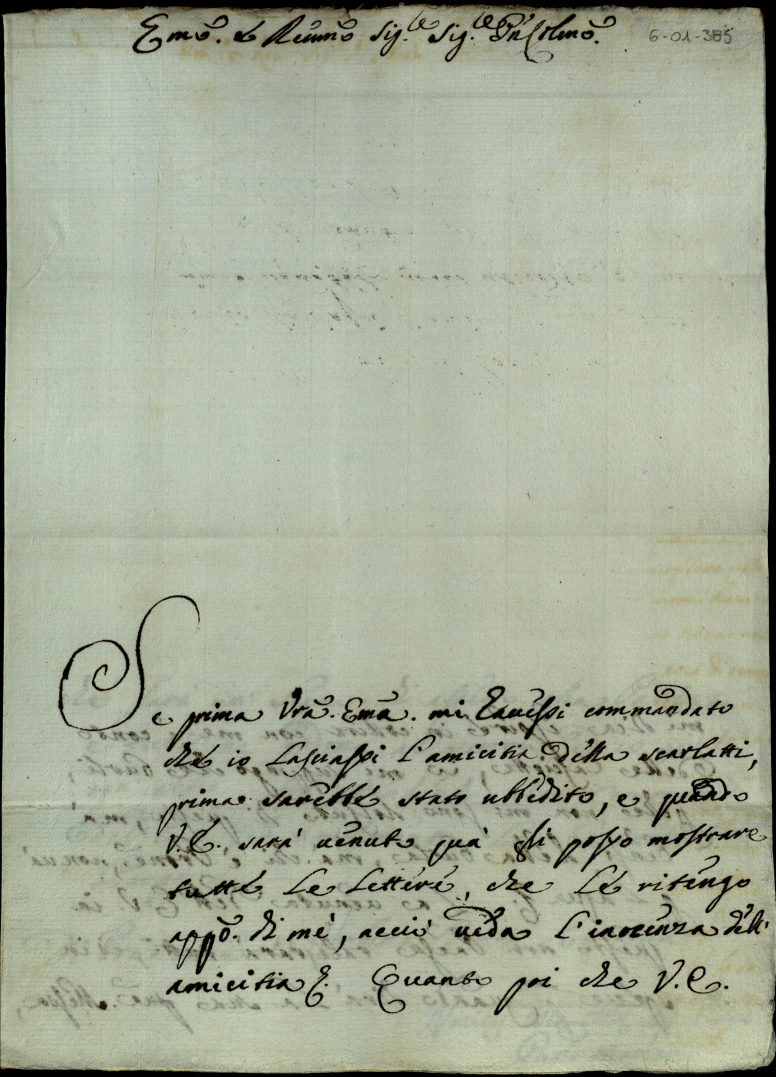 Emõ. e Reũmo Sig.re Sig.re Pñ Colmõ.
6-01-385
Se prima Vrã. Emã. mi havessi commandato
che io lasciassi l'amicitia della scarlatti,
prima sarebbe stato ubbidito, e quando
V.E. sarà venuto quà gli posso mostrare
tutte le lettere, che le ritengo
appõ. di mè, acciò veda l'inocenza dell'
amicitia E. Quanto poi che V.E.